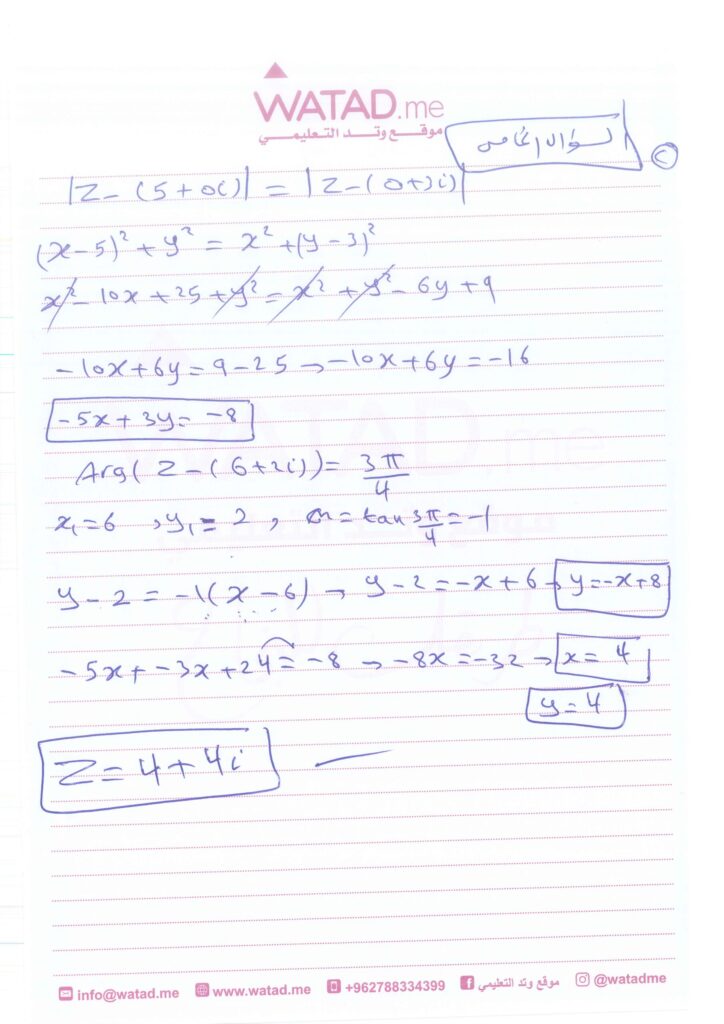 WATAD.me
موقع وتد التعليمي
السؤال الخامس
|z - (5+0i)| = |z - (0+3i)|
(x-5)² + y² = x² + (y-3)²
x² - 10x + 25 + y² = x² + y² - 6y + 9
-10x + 6y = 9 - 25 → -10x + 6y = -16
-5x + 3y = -8
Arg(z - (6+2i)) = 3π/4
x₁ = 6 , y₁ = 2 , m = tan 3π/4 = -1
y - 2 = -1(x - 6) → y - 2 = -x + 6 → y = -x + 8
-5x + -3x + 24 = -8 → -8x = -32 → x = 4
y = 4
z = 4 + 4i
info@watad.me www.watad.me +962788334399 موقع وتد التعليمي @watadme